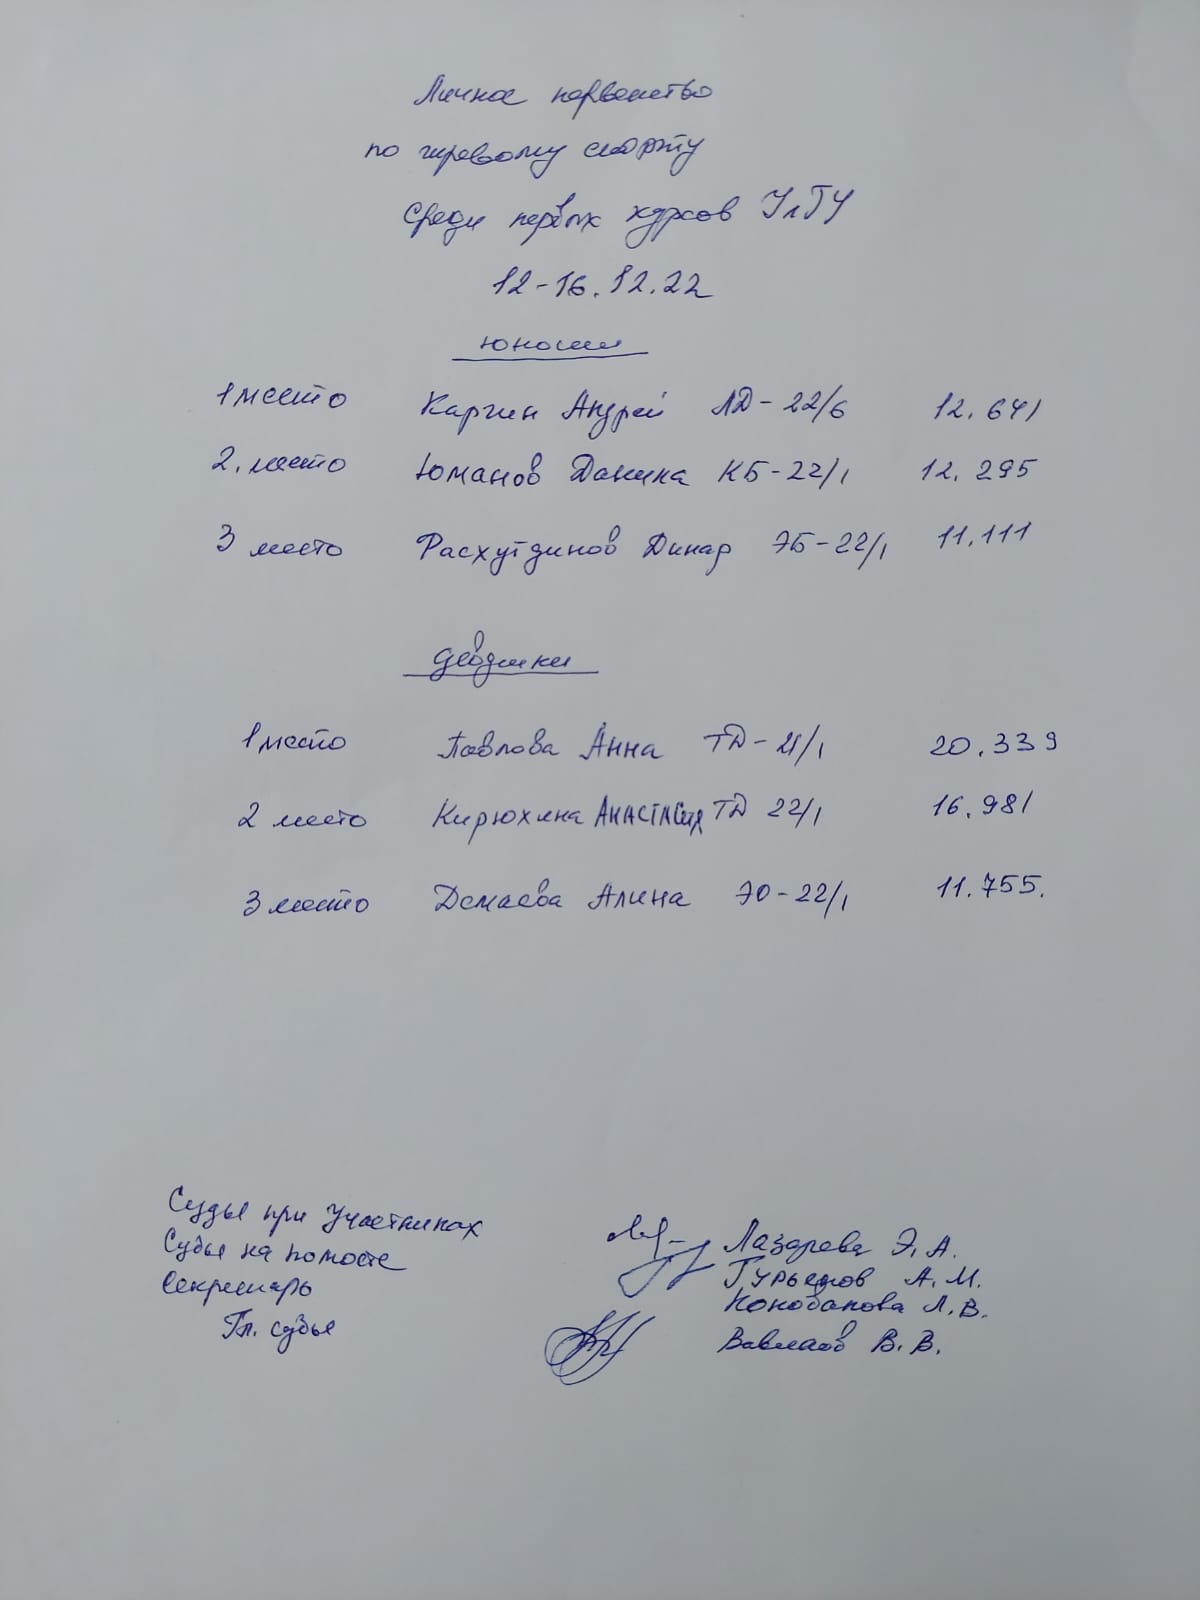 Личное первенство
по гиревому спорту
Среди первых курсов УлГУ
12-16.12.22
юноши
1 место Каргин Андрей ЛД-22/6 12.641
2. место Юманов Данила КБ-22/1 12.295
3 место Фасхутдинов Динар ЭБ-22/1 11.111
девушки
1 место Павлова Анна ТД-21/1 20.339
2 место Кирюхина Анастасия ТД 22/1 16.981
3 место Демаева Алина ЭО-22/1 11.755.
Судья при участниках Лазарева Э.А.
Судья на помосте Гурьянов А.М.
Секретарь Конобанова Л.В.
Гл. судья В.В.